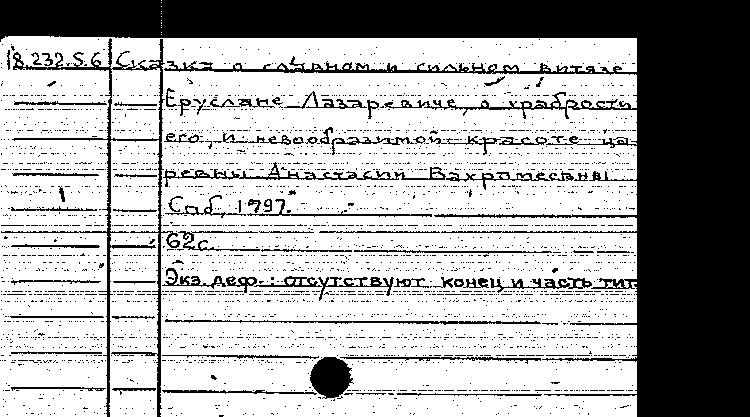 18.232.5.6 Сказка о славном и сильном витязе
Еруслане Лазаревиче, о храбрости
его, и невообразимой красоте ца-
ревны Анастасии Вахромеевны
Спб, 1797.
62с.
Экз. деф.: отсутствуют конец и часть тит